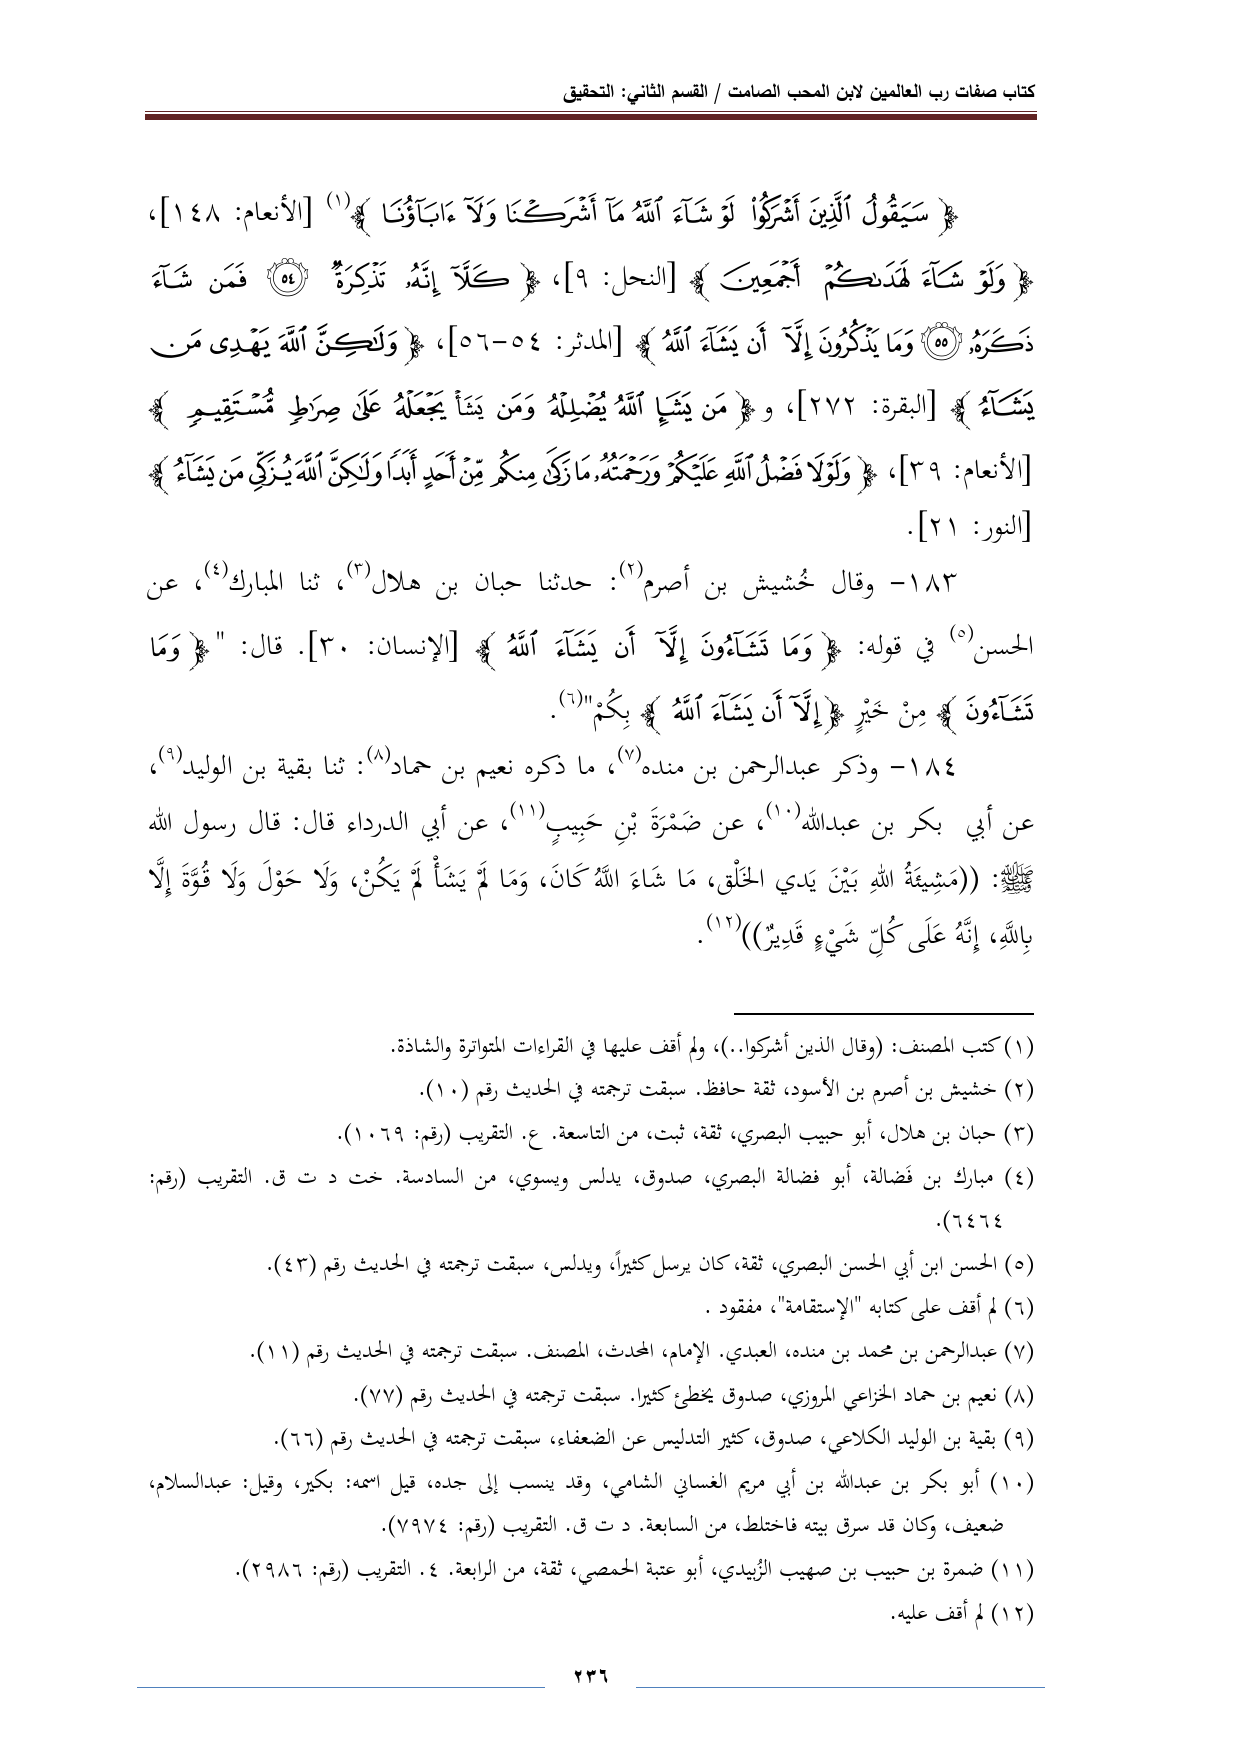 كتاب صفات رب العالمين لابن المحب الصامت / القسم الثاني: التحقيق
﴿ سَيَقُولُ ٱلَّذِينَ أَشْرَكُواْ لَوْ شَآءَ ٱللَّهُ مَآ أَشْرَكْنَا وَلَآ ءَابَآؤُنَا ﴾(١) [الأنعام: ١٤٨]،
﴿ وَلَوْ شَآءَ لَهَدَىٰكُمْ أَجْمَعِينَ ﴾ [النحل: ٩]، ﴿ كَلَّآ إِنَّهُۥ تَذْكِرَةٌ ٥٤ فَمَن شَآءَ
ذَكَرَهُۥ ٥٥ وَمَا يَذْكُرُونَ إِلَّآ أَن يَشَآءَ ٱللَّهُ ﴾ [المدثر: ٥٤-٥٦]، ﴿ وَلَٰكِنَّ ٱللَّهَ يَهْدِى مَن
يَشَآءُ ﴾ [البقرة: ٢٧٢]، و ﴿ مَن يَشَإِ ٱللَّهُ يُضْلِلْهُ وَمَن يَشَأْ يَجْعَلْهُ عَلَىٰ صِرَٰطٍ مُّسْتَقِيمٍ ﴾
[الأنعام: ٣٩]، ﴿ وَلَوْلَا فَضْلُ ٱللَّهِ عَلَيْكُمْ وَرَحْمَتُهُۥ مَا زَكَىٰ مِنكُم مِّنْ أَحَدٍ أَبَدًا وَلَٰكِنَّ ٱللَّهَ يُزَكِّى مَن يَشَآءُ ﴾
[النور: ٢١].
١٨٣- وقال خُشيش بن أصرم(٢): حدثنا حبان بن هلال(٣)، ثنا المبارك(٤)، عن
الحسن(٥) في قوله: ﴿ وَمَا تَشَآءُونَ إِلَّآ أَن يَشَآءَ ٱللَّهُ ﴾ [الإنسان: ٣٠]. قال: "﴿ وَمَا
تَشَآءُونَ ﴾ مِنْ خَيْرٍ ﴿ إِلَّآ أَن يَشَآءَ ٱللَّهُ ﴾ بِكُمْ"(٦).
١٨٤- وذكر عبدالرحمن بن منده(٧)، ما ذكره نعيم بن حماد(٨): ثنا بقية بن الوليد(٩)،
عن أبي بكر بن عبدالله(١٠)، عن ضَمْرَةَ بْنِ حَبِيبٍ(١١)، عن أبي الدرداء قال: قال رسول الله
ﷺ: ((مَشِيئَةُ اللهِ بَيْنَ يَدي الخَلْق، مَا شَاءَ اللَّهُ كَانَ، وَمَا لَمْ يَشَأْ لَمْ يَكُنْ، وَلَا حَوْلَ وَلَا قُوَّةَ إِلَّا
بِاللَّهِ، إِنَّهُ عَلَى كُلِّ شَيْءٍ قَدِيرٌ))(١٢).
(١) كتب المصنف: (وقال الذين أشركوا..)، ولم أقف عليها في القراءات المتواترة والشاذة.
(٢) خشيش بن أصرم بن الأسود، ثقة حافظ. سبقت ترجمته في الحديث رقم (١٠).
(٣) حبان بن هلال، أبو حبيب البصري، ثقة، ثبت، من التاسعة. ع. التقريب (رقم: ١٠٦٩).
(٤) مبارك بن فَضالة، أبو فضالة البصري، صدوق، يدلس ويسوي، من السادسة. خت د ت ق. التقريب (رقم:
٦٤٦٤).
(٥) الحسن ابن أبي الحسن البصري، ثقة، كان يرسل كثيراً، ويدلس، سبقت ترجمته في الحديث رقم (٤٣).
(٦) لم أقف على كتابه "الإستقامة"، مفقود .
(٧) عبدالرحمن بن محمد بن منده، العبدي. الإمام، المحدث، المصنف. سبقت ترجمته في الحديث رقم (١١).
(٨) نعيم بن حماد الخزاعي المروزي، صدوق يخطئ كثيرا. سبقت ترجمته في الحديث رقم (٧٧).
(٩) بقية بن الوليد الكلاعي، صدوق، كثير التدليس عن الضعفاء، سبقت ترجمته في الحديث رقم (٦٦).
(١٠) أبو بكر بن عبدالله بن أبي مريم الغساني الشامي، وقد ينسب إلى جده، قيل اسمه: بكير، وقيل: عبدالسلام،
ضعيف، وكان قد سرق بيته فاختلط، من السابعة. د ت ق. التقريب (رقم: ٧٩٧٤).
(١١) ضمرة بن حبيب بن صهيب الزُبيدي، أبو عتبة الحمصي، ثقة، من الرابعة. ٤. التقريب (رقم: ٢٩٨٦).
(١٢) لم أقف عليه.
٢٣٦